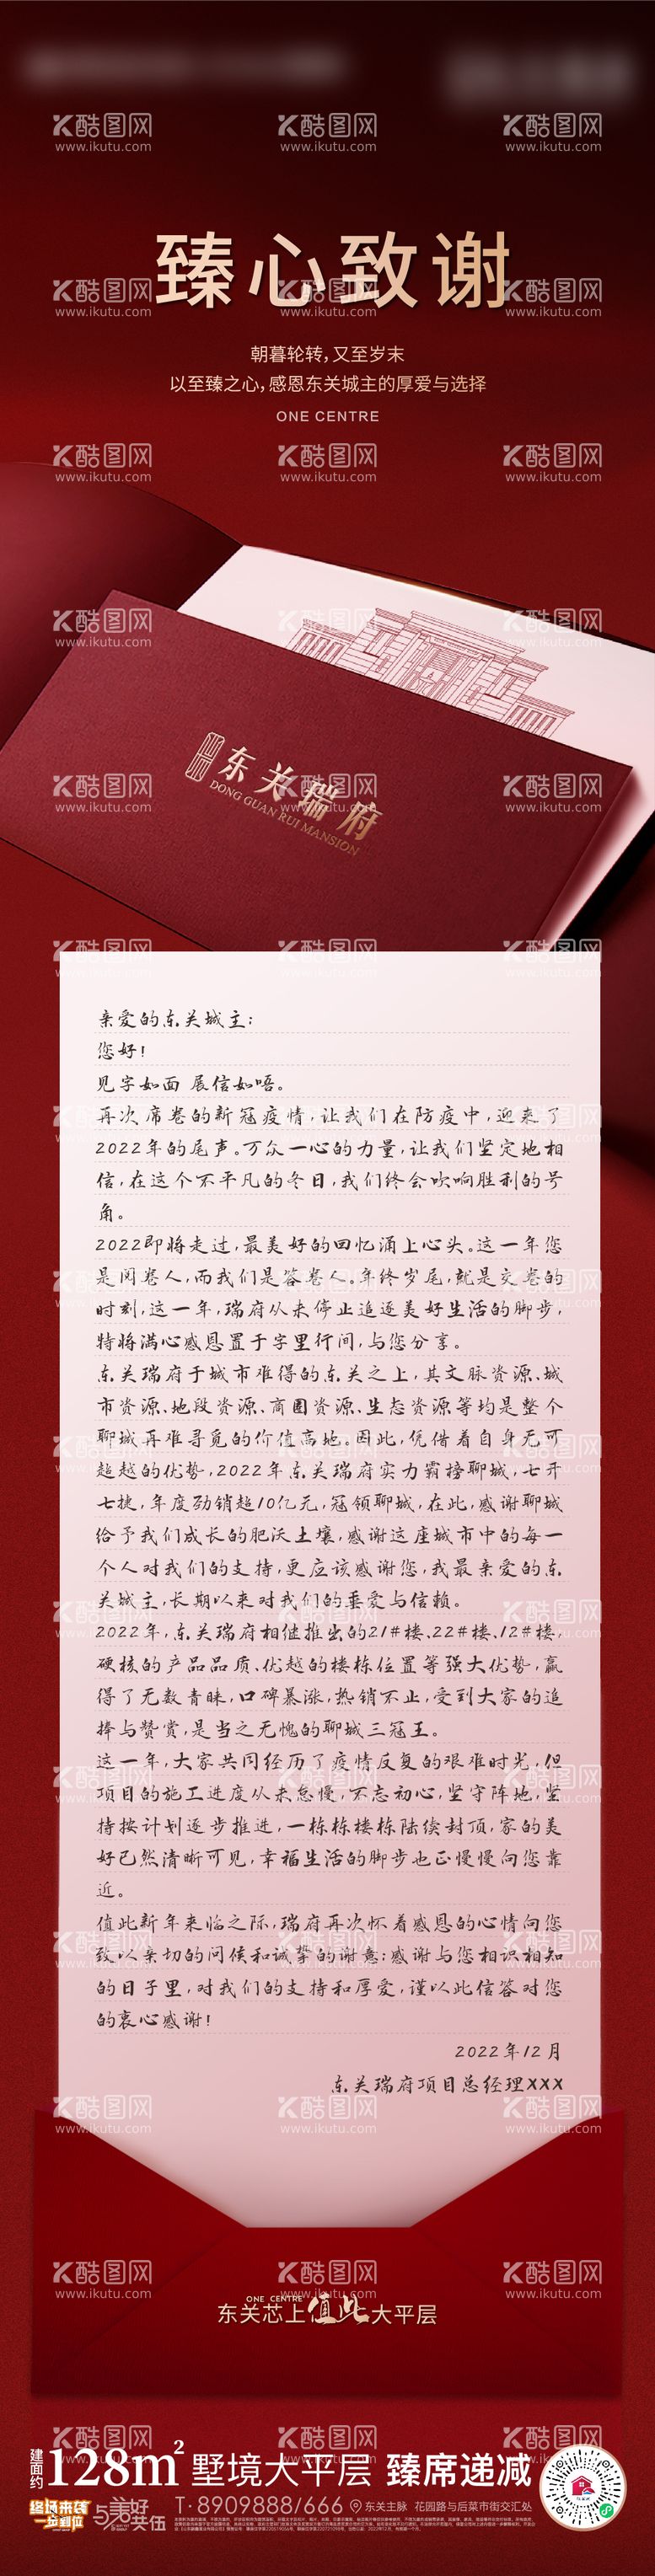 臻心致谢
朝暮轮转，又至岁末
以至臻之心，感恩东关城主的厚爱与选择
ONE CENTRE
东关瑞府
DONG GUAN RUI MANSION
亲爱的东关城主：
您好！
见字如面 展信如唔。
再次席卷的新冠疫情，让我们在防疫中，迎来了
2022年的尾声。万众一心的力量，让我们坚定地相
信，在这个不平凡的冬日，我们终会吹响胜利的号
角。
2022即将走过，最美好的回忆涌上心头。这一年您
是阅卷人，而我们是答卷人。年终岁尾，就是交卷的
时刻，这一年，瑞府从未停止追逐美好生活的脚步，
特将满心感恩置于字里行间，与您分享。
东关瑞府于城市难得的东关之上，其文脉资源、城
市资源、地段资源、商圈资源、生态资源等均是整个
聊城再难寻觅的价值高地。因此，凭借着自身无可
超越的优势，2022年东关瑞府实力霸榜聊城，七开
七捷，年度劲销超10亿元，冠领聊城，在此，感谢聊城
给予我们成长的肥沃土壤，感谢这座城市中的每一
个人对我们的支持，更应该感谢您，我最亲爱的东
关城主，长期以来对我们的垂爱与信赖。
2022年，东关瑞府相继推出的21#楼、22#楼、12#楼，
硬核的产品品质、优越的楼栋位置等强大优势，赢
得了无数青睐，口碑暴涨，热销不止，受到大家的追
捧与赞赏，是当之无愧的聊城三冠王。
这一年，大家共同经历了疫情反复的艰难时光，但
项目的施工进度从未怠慢，不忘初心，坚守阵地，坚
持按计划逐步推进，一栋栋楼栋陆续封顶，家的美
好已然清晰可见，幸福生活的脚步也正慢慢向您靠
近。
值此新年来临之际，瑞府再次怀着感恩的心情向您
致以亲切的问候和诚挚的谢意；感谢与您相识相知
的日子里，对我们的支持和厚爱，谨以此信答对您
的衷心感谢！
2022年12月
东关瑞府项目总经理XXX
ONE CENTRE
东关芯上值此大平层
建面约128m²墅境大平层 臻席递减
终场来袭
一步到位
T·8909888/666 东关主脉 花园路与后菜市街交汇处
酷图网
www.ikutu.com